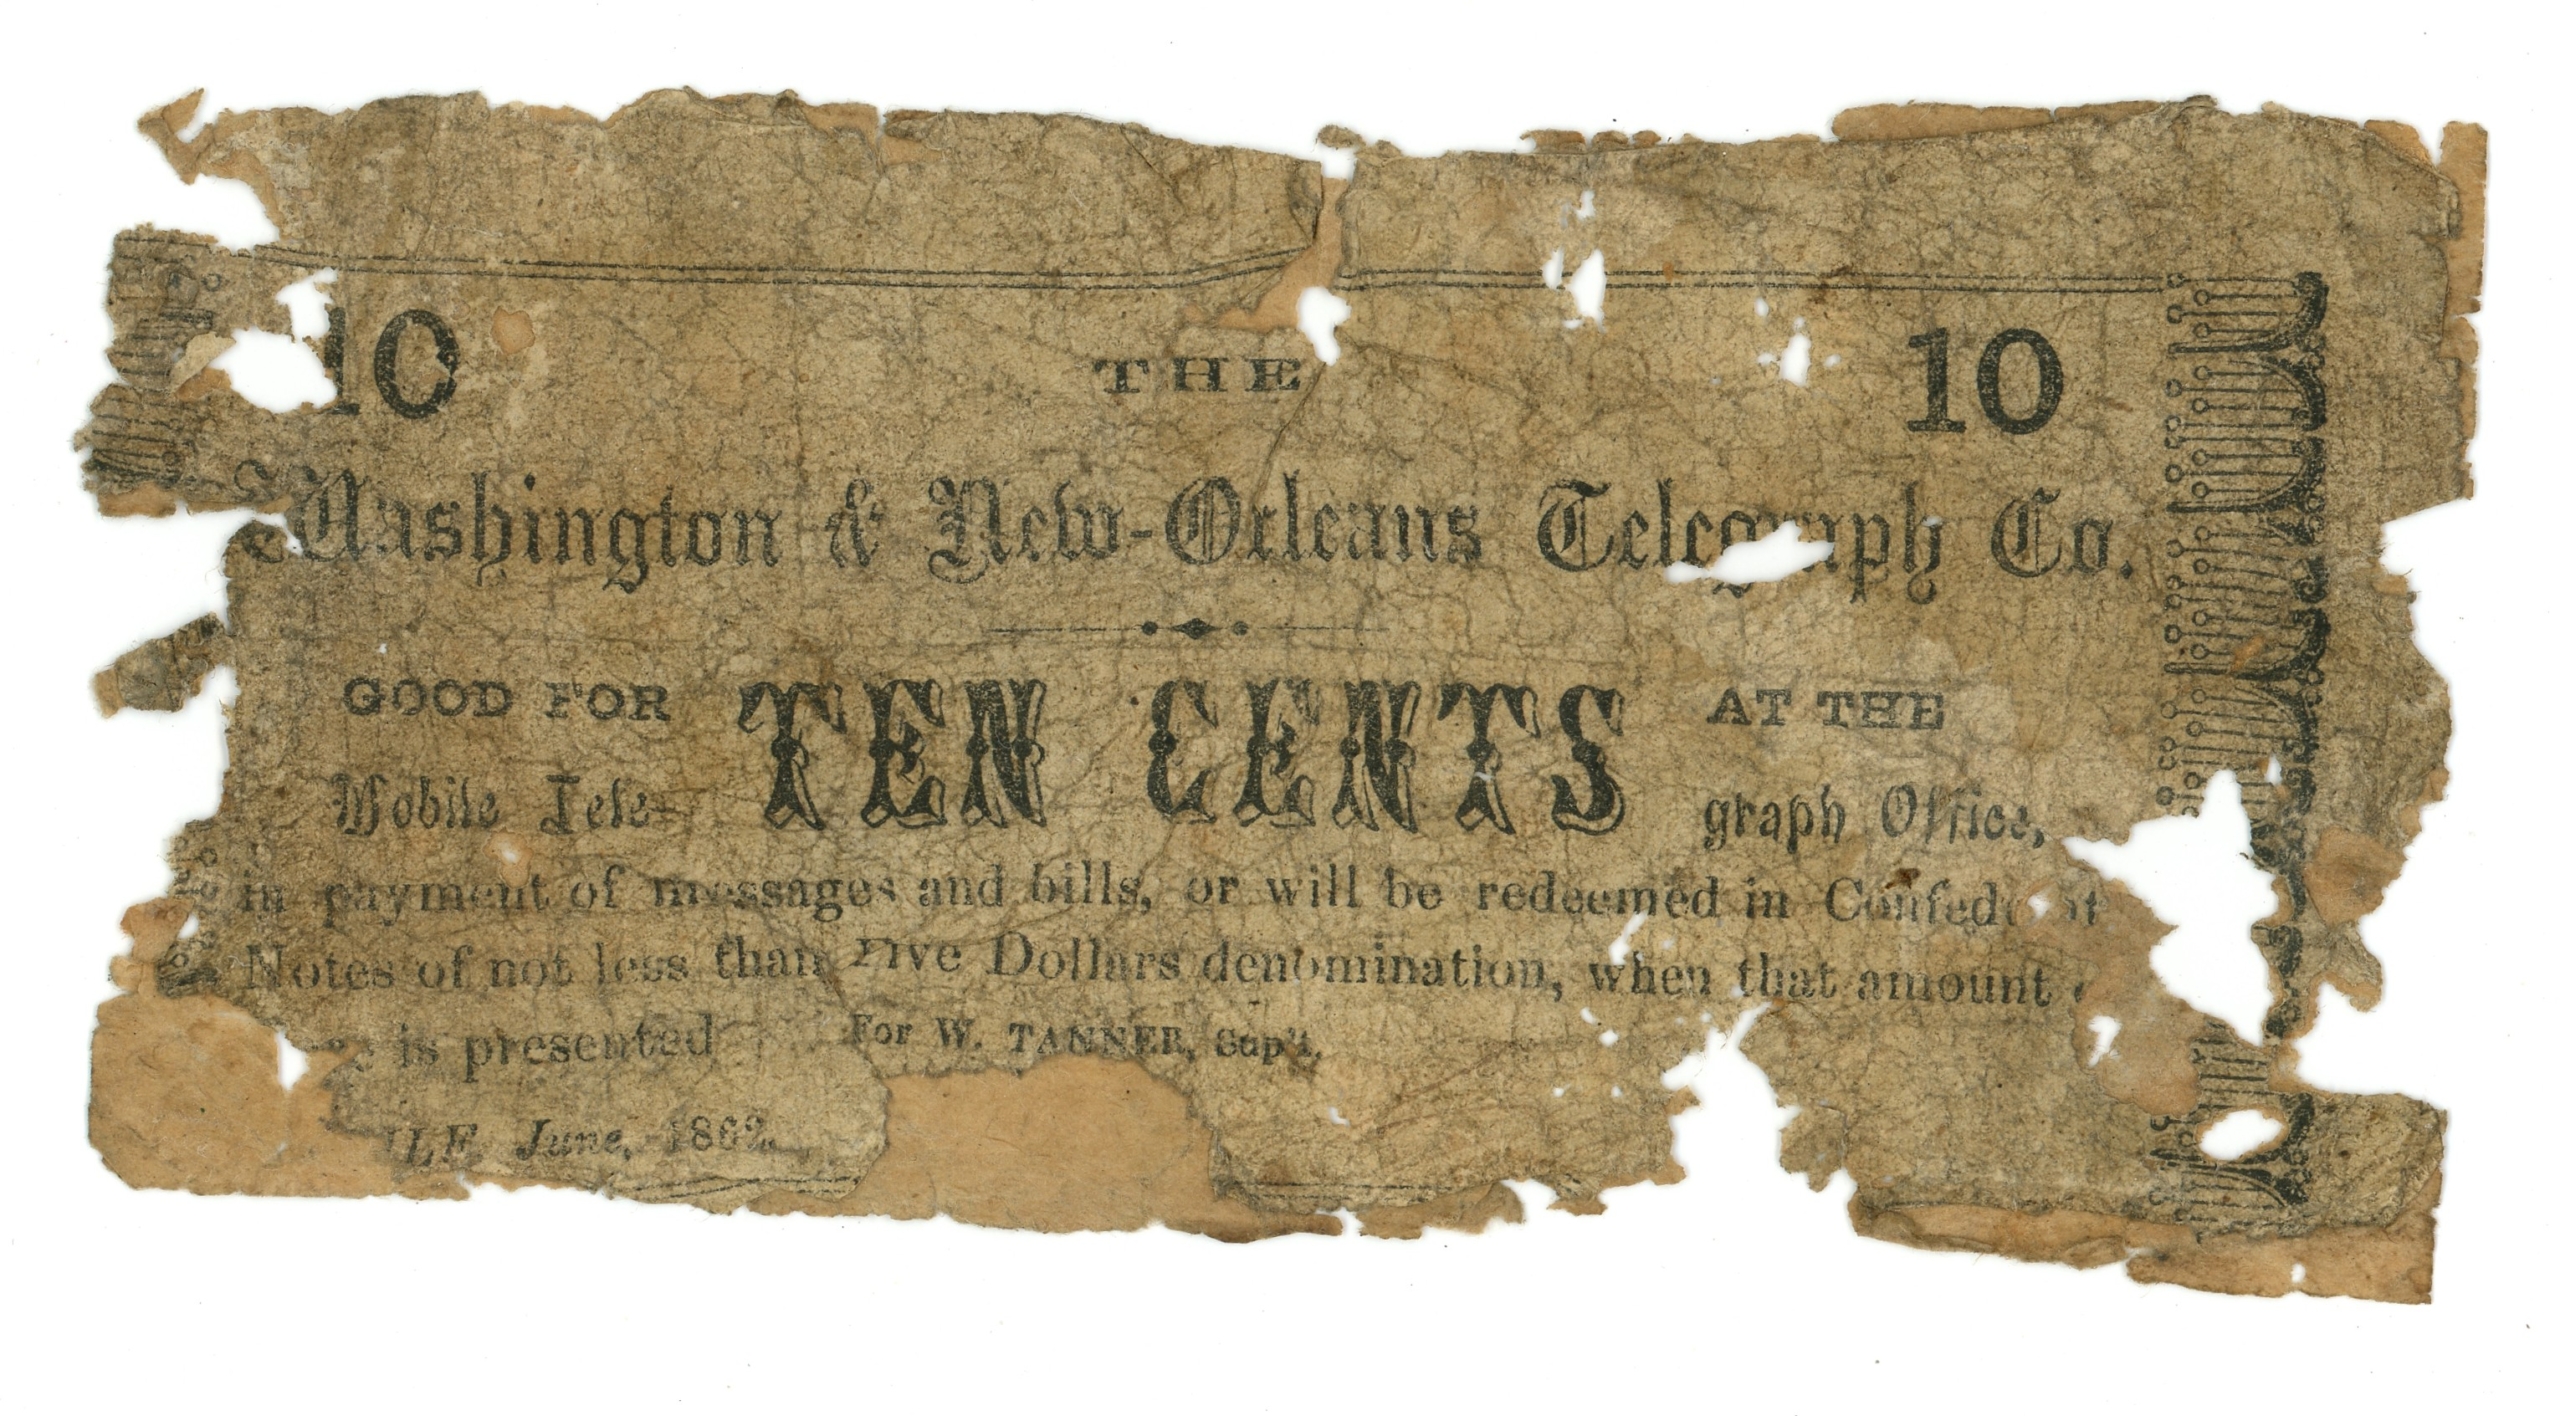 10 THE 10
Washington & New-Orleans Telegraph Co.
GOOD FOR TEN CENTS AT THE
Mobile Tele- graph Office,
in payment of messages and bills, or will be redeemed in
Notes of not less than Five Dollars denomination, when that amount
is presented For W. TANNER, Sup't.
June, 1862.